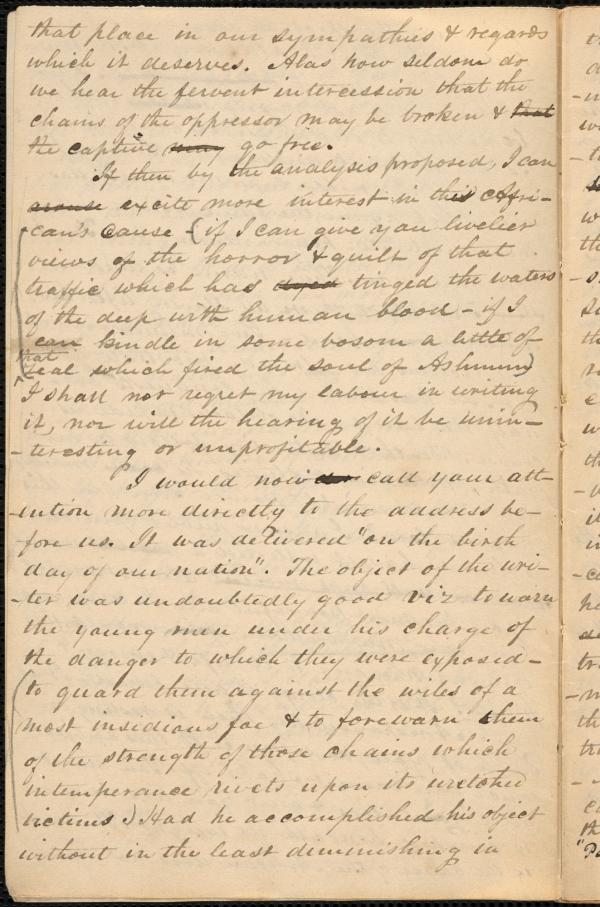 that place in our sympathies & regards
which it deserves. Alas how seldom do
we hear the fervent intercession that the
chains of the oppressor may be broken & that
the captive may go free.
If then by the analysis proposed, I can
arouse excite more interest in this Afri-
can's cause - (if I can give you livelier
views of the horror & guilt of that
traffic which has dyed tinged the waters
of the deep with human blood - if I
can kindle in some bosom a little of
that
zeal which fired the soul of Ashmun)
I shall not regret my labour in writing
it, nor will the hearing of it be unin-
-teresting or unprofitable.
I would now call your att-
-ention more directly to the address be-
fore us. It was delivered "on the birth
day of our nation". The object of the wri-
-ter was undoubtedly good viz to warn
the young men under his charge of
the danger to which they were exposed -
(to guard them against the wiles of a
most insidious foe & to forewarn them
of the strength of those chains which
intemperance rivets upon its wretched
victims) Had he accomplished his object
without in the least diminishing in